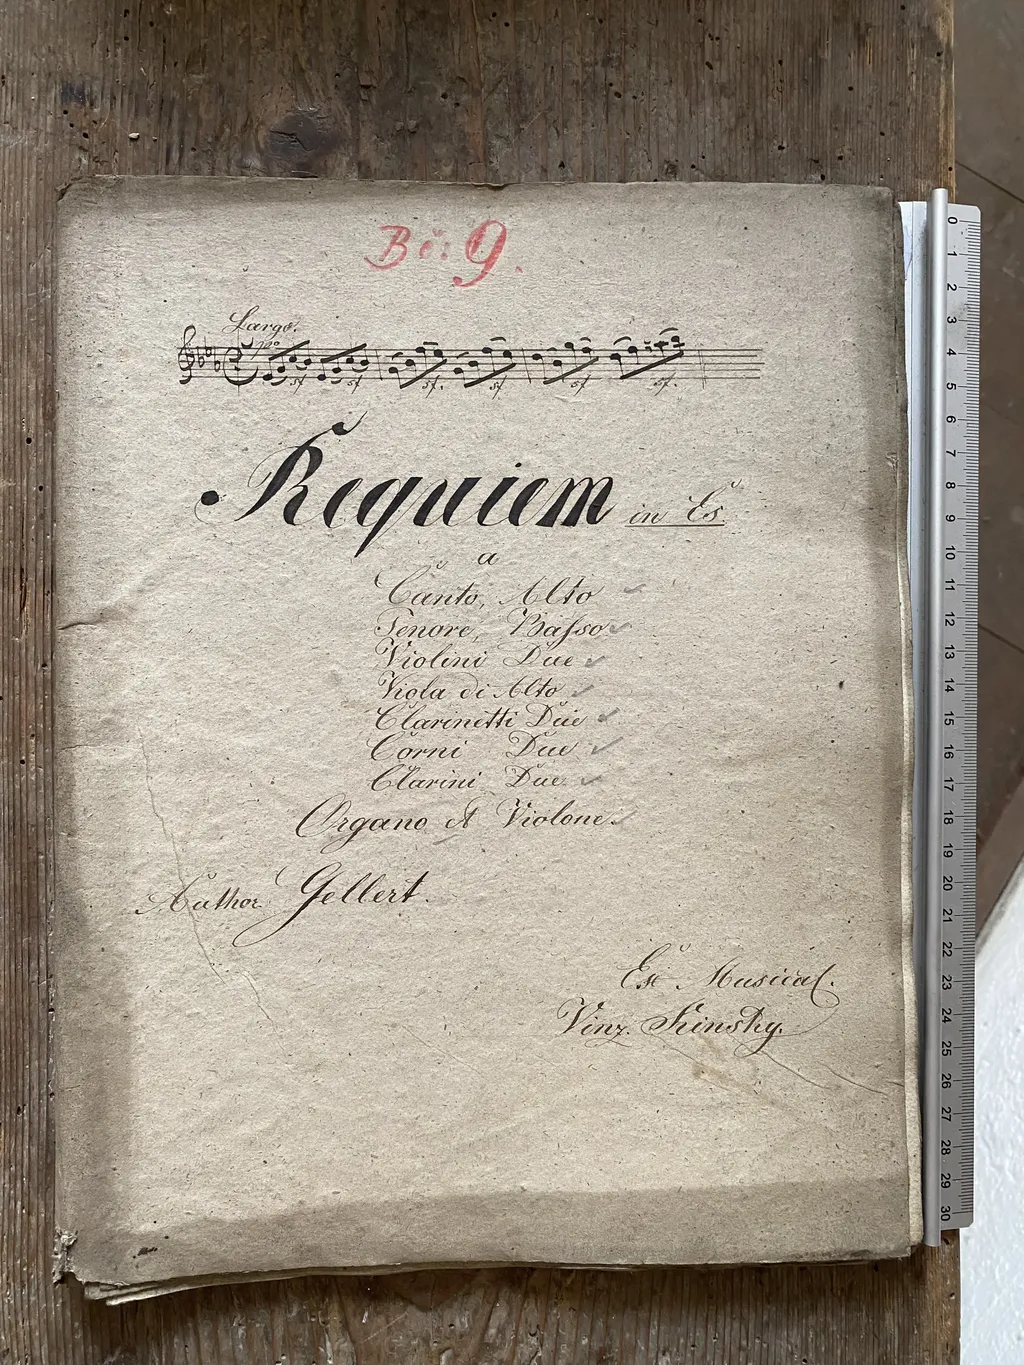 Bč: 9.
Largo.
po
sf sf sf. sf sf sf.
Requiem in Es
a
Canto, Alto
Tenore, Basso
Violini Due
Viola di Alto
Clarinetti Due
Corni Due
Clarini Due
Organo et Violone.
Author Gellert.
Musical.
Vinz. Kinsky.
0
1
2
3
4
5
6
7
8
9
10
11
12
13
14
15
16
17
18
19
20
21
22
23
24
25
26
27
28
29
30